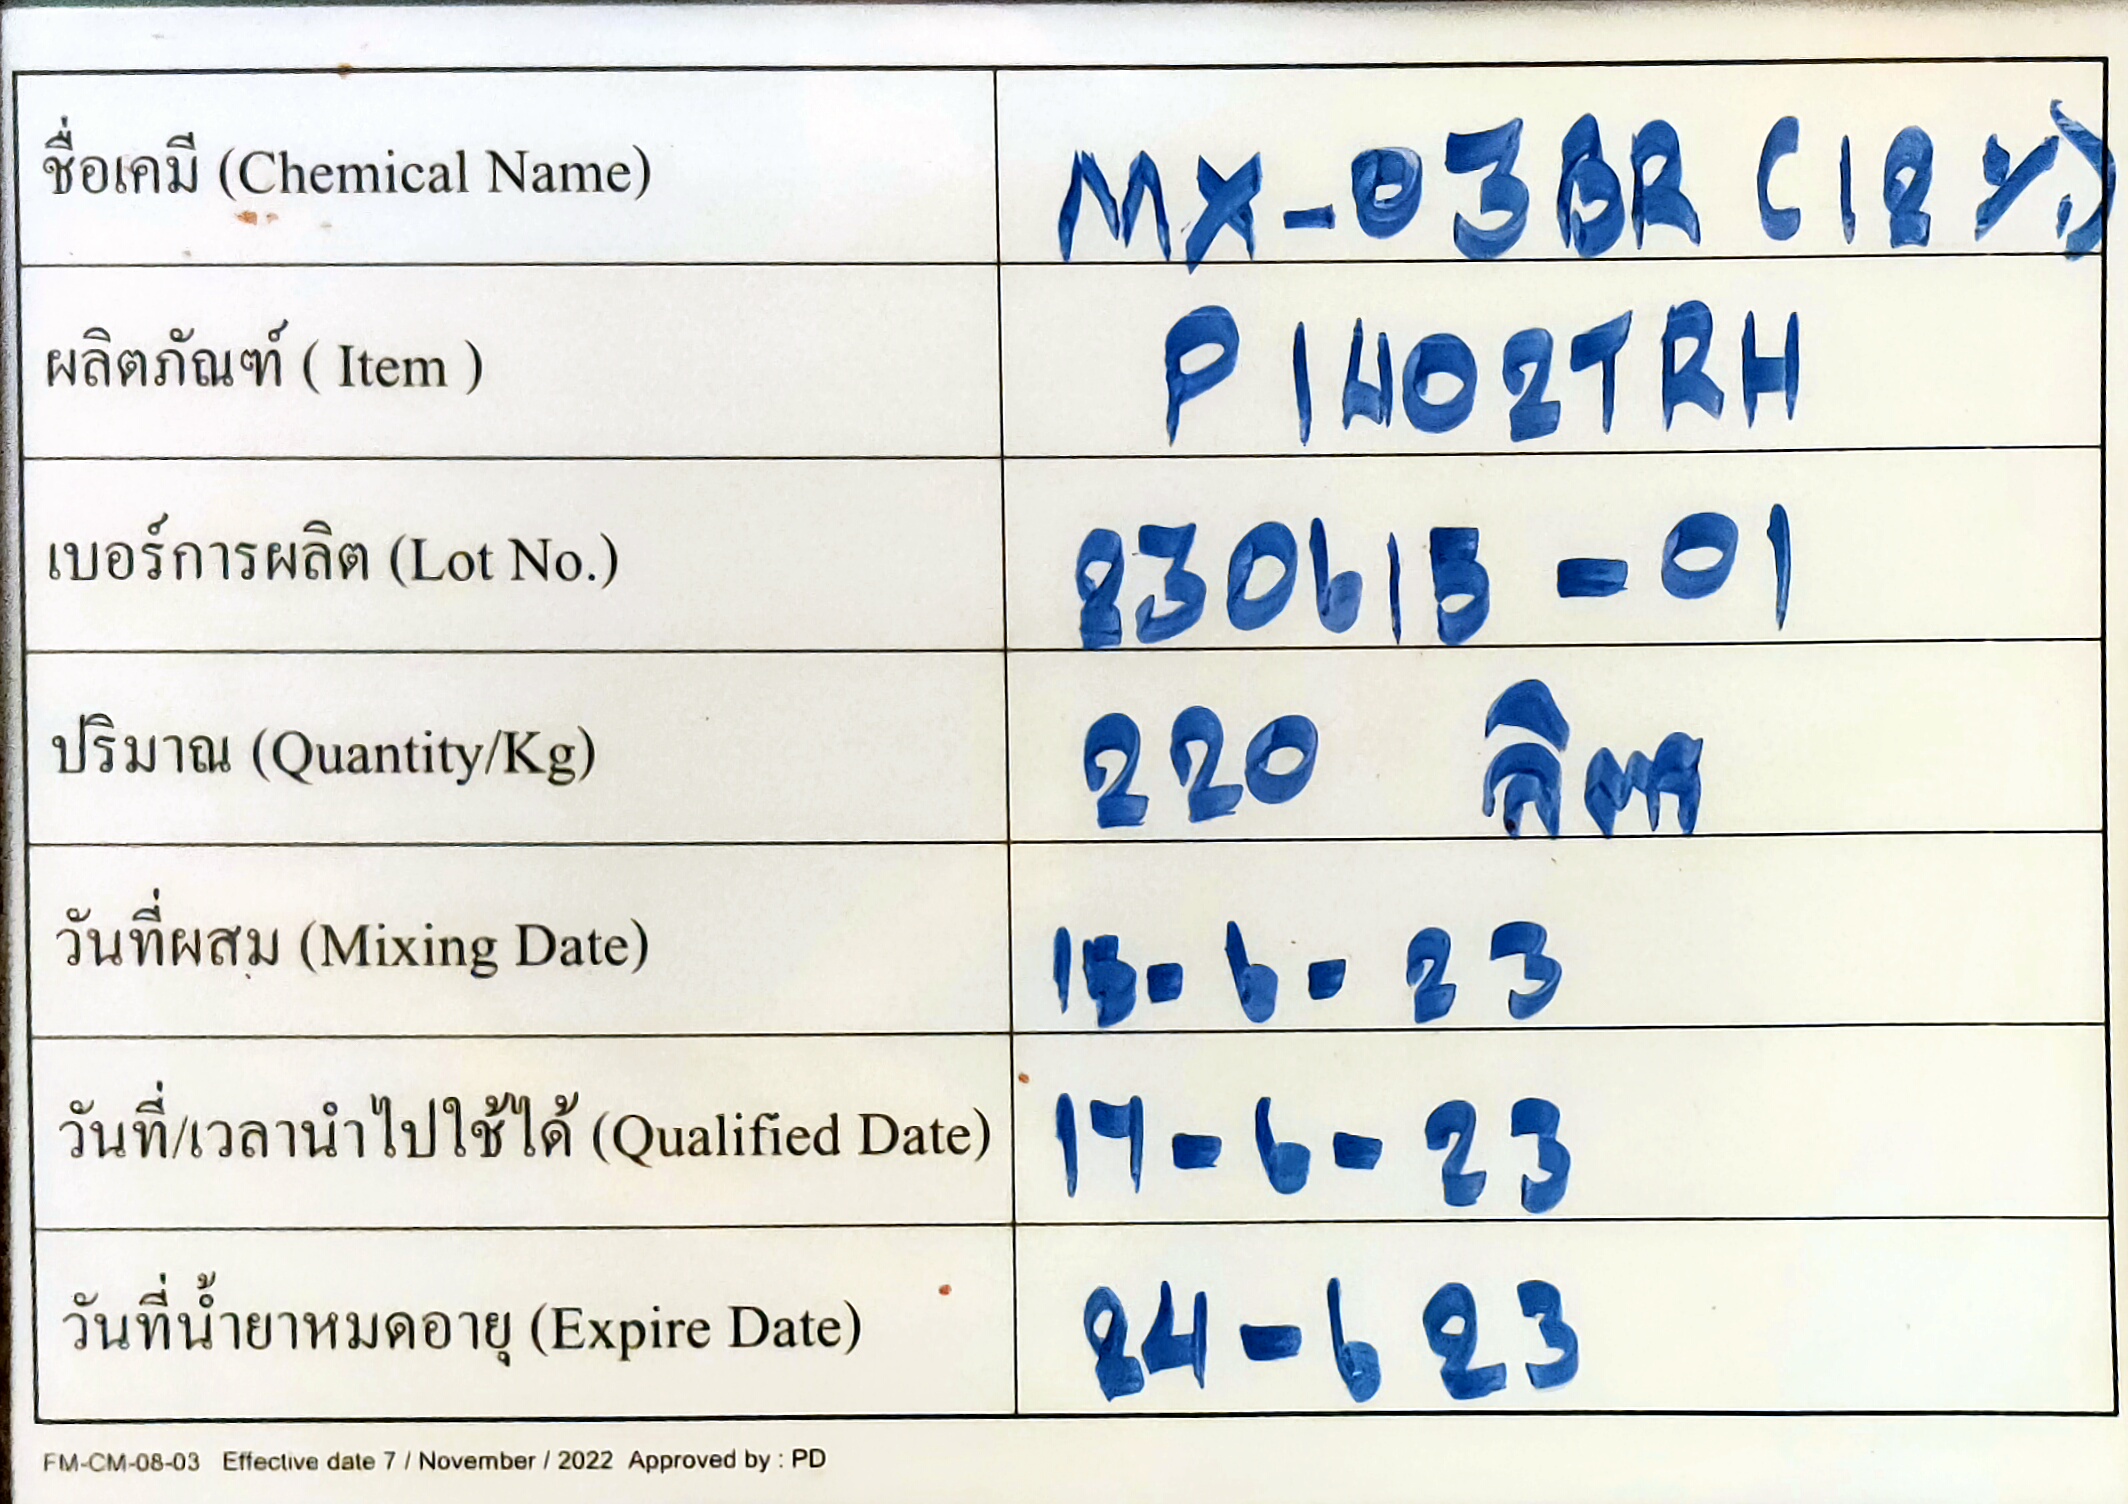 ชื่อเคมี (Chemical Name) MX-03BR (12%)
ผลิตภัณฑ์ ( Item ) P1402TRH
เบอร์การผลิต (Lot No.) 230615-01
ปริมาณ (Quantity/Kg) 220 ลิตร
วันที่ผสม (Mixing Date) 15-6-23
วันที่/เวลานำไปใช้ได้ (Qualified Date) 17-6-23
วันที่น้ำยาหมดอายุ (Expire Date) 24-6 23
FM-CM-08-03 Effective date 7 / November / 2022 Approved by : PD